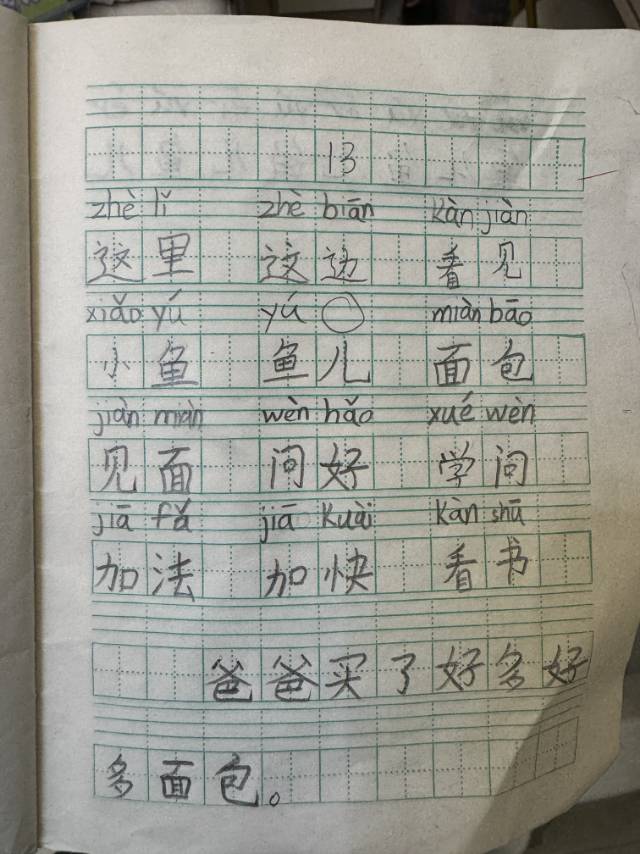 13
zhè lǐ zhè biān kàn jiàn
这里 这边 看见
xiǎo yú yú ○ miàn bāo
小鱼 鱼儿 面包
jiàn miàn wèn hǎo xué wèn
见面 问好 学问
jiā fǎ jiā kuài kàn shū
加法 加快 看书
爸爸买了好多好
多面包。